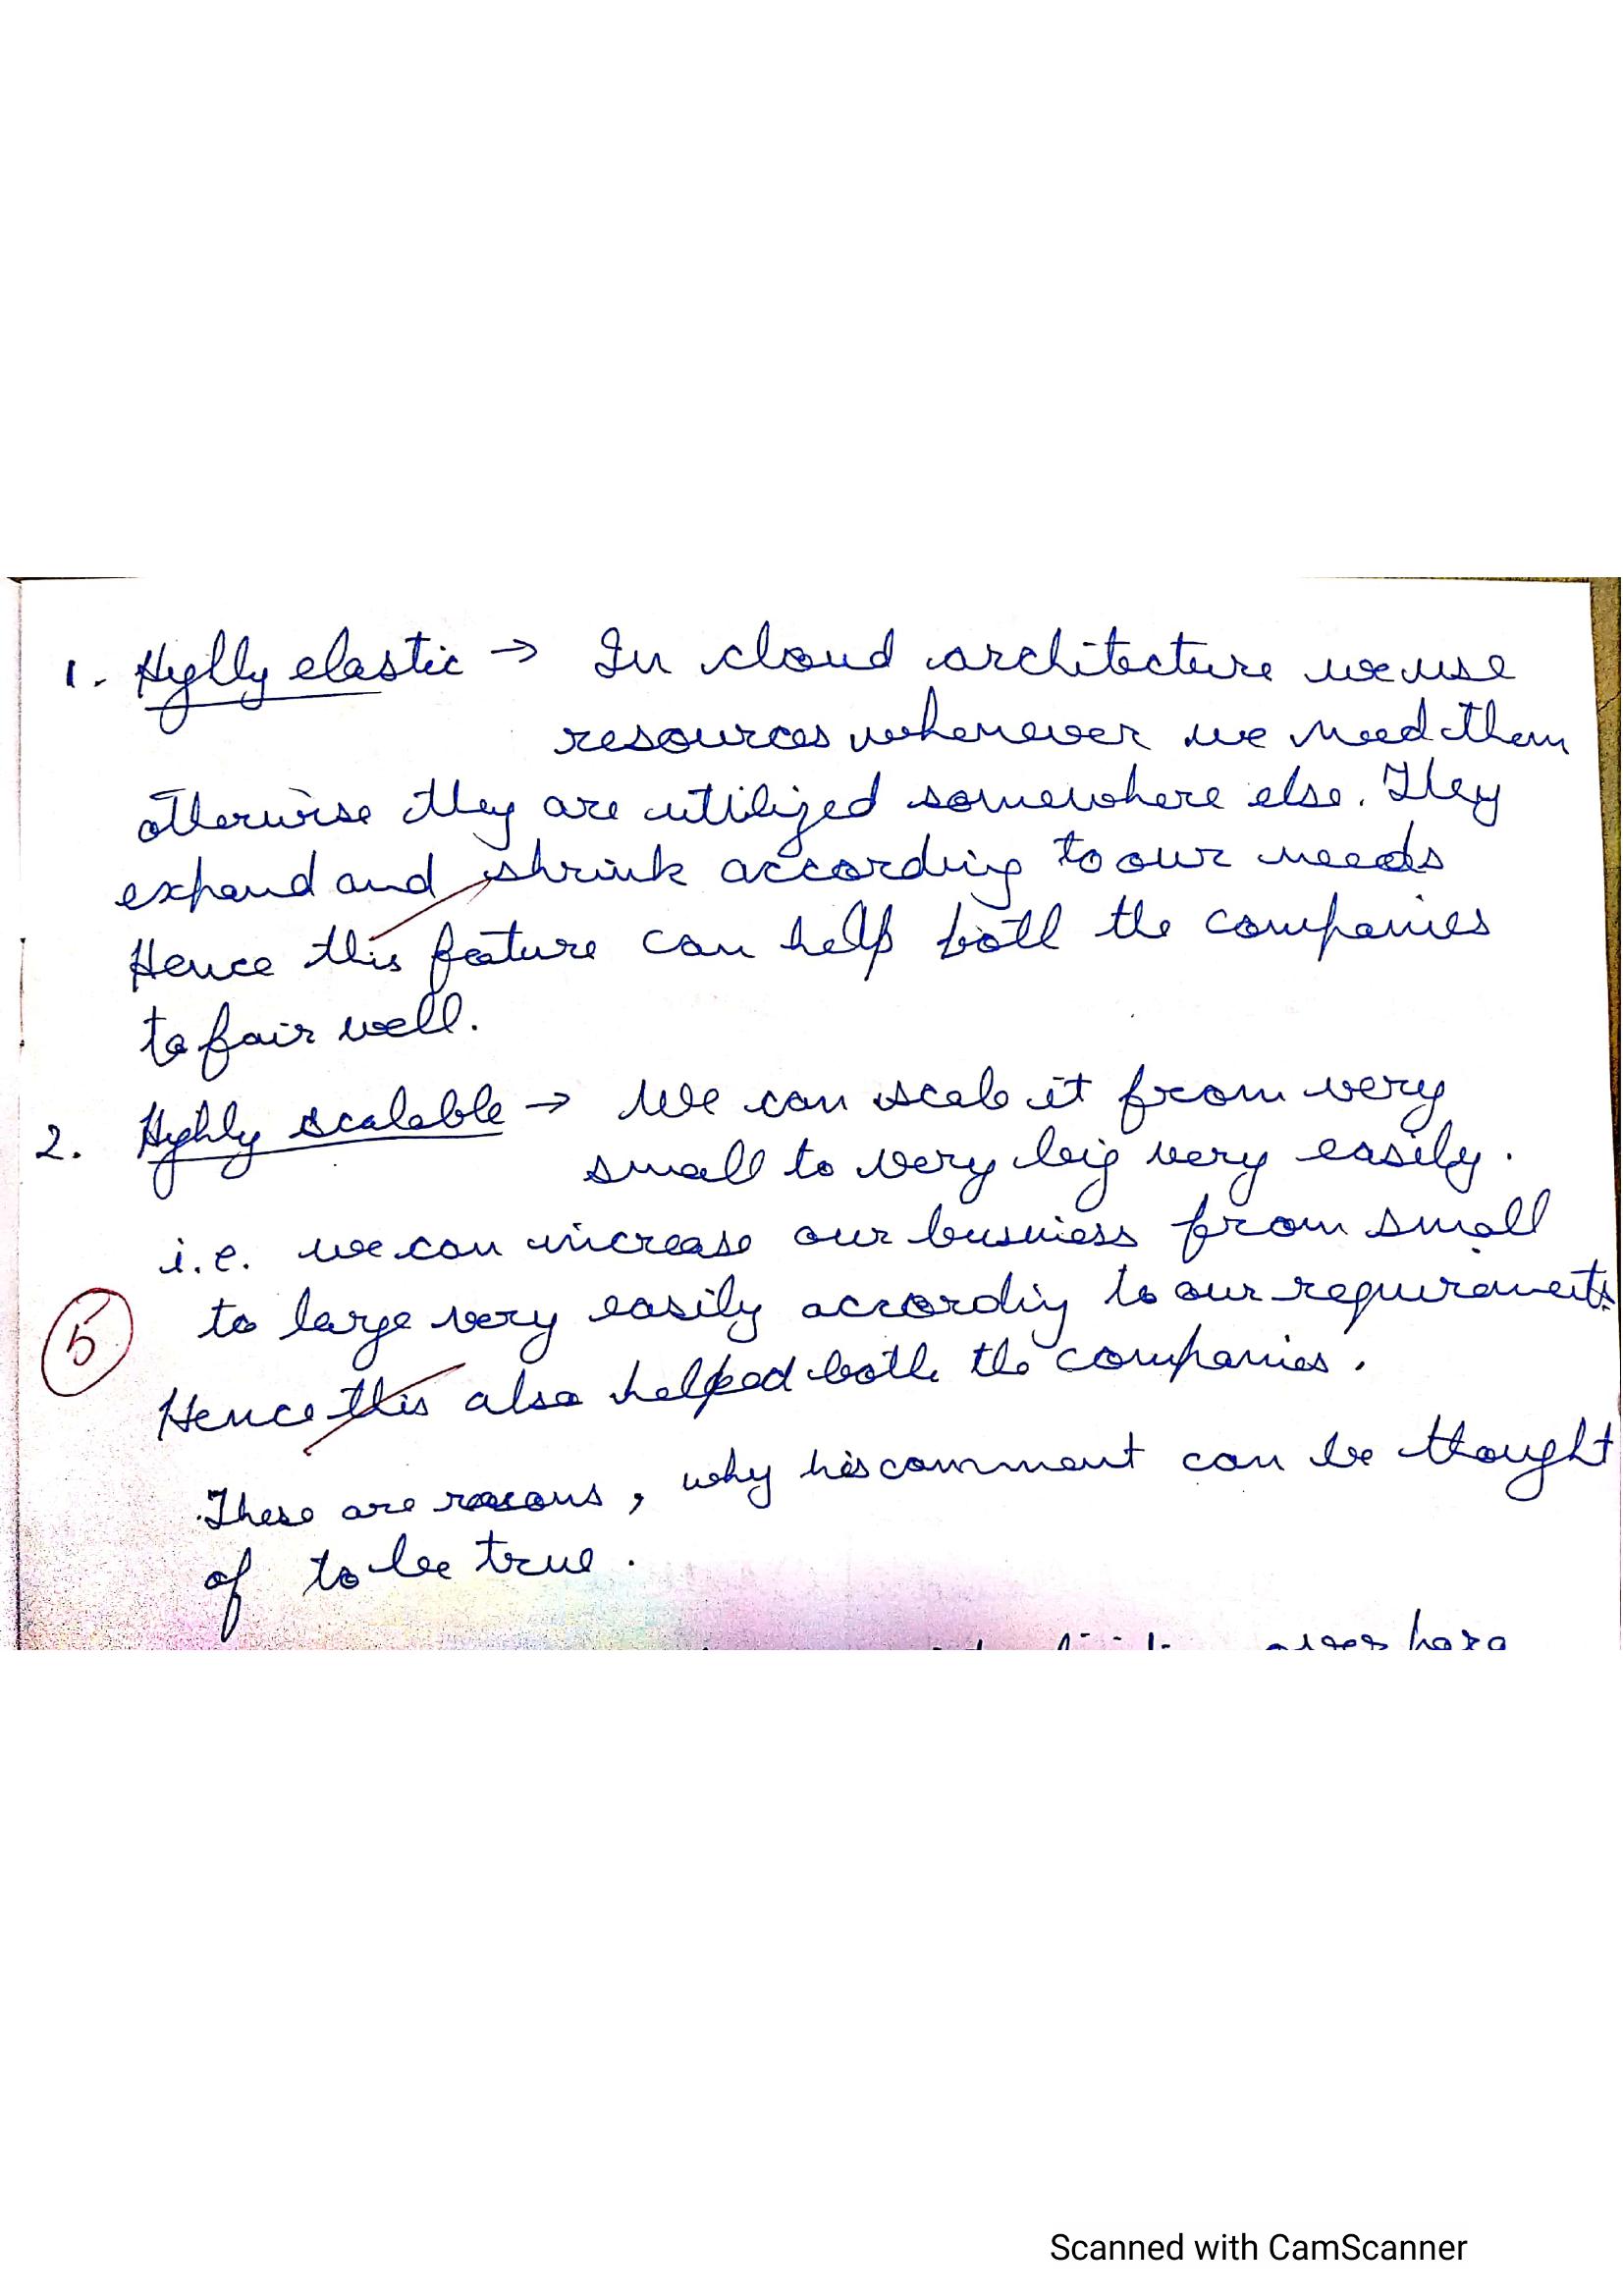 1. Highly elastic → In cloud architecture we use
resources whenever we need them
otherwise they are utilized somewhere else. They
expand and shrink according to our needs
Hence this feature can help both the companies
to fair well.
2. Highly scalable → We can scale it from very
small to very big very easily.
i.e. we can increase our business from small
to large very easily according to our requirements.
5
Hence this also helped both the companies.
These are reasons, why his comment can be thought
of to be true.
over here
Scanned with CamScanner